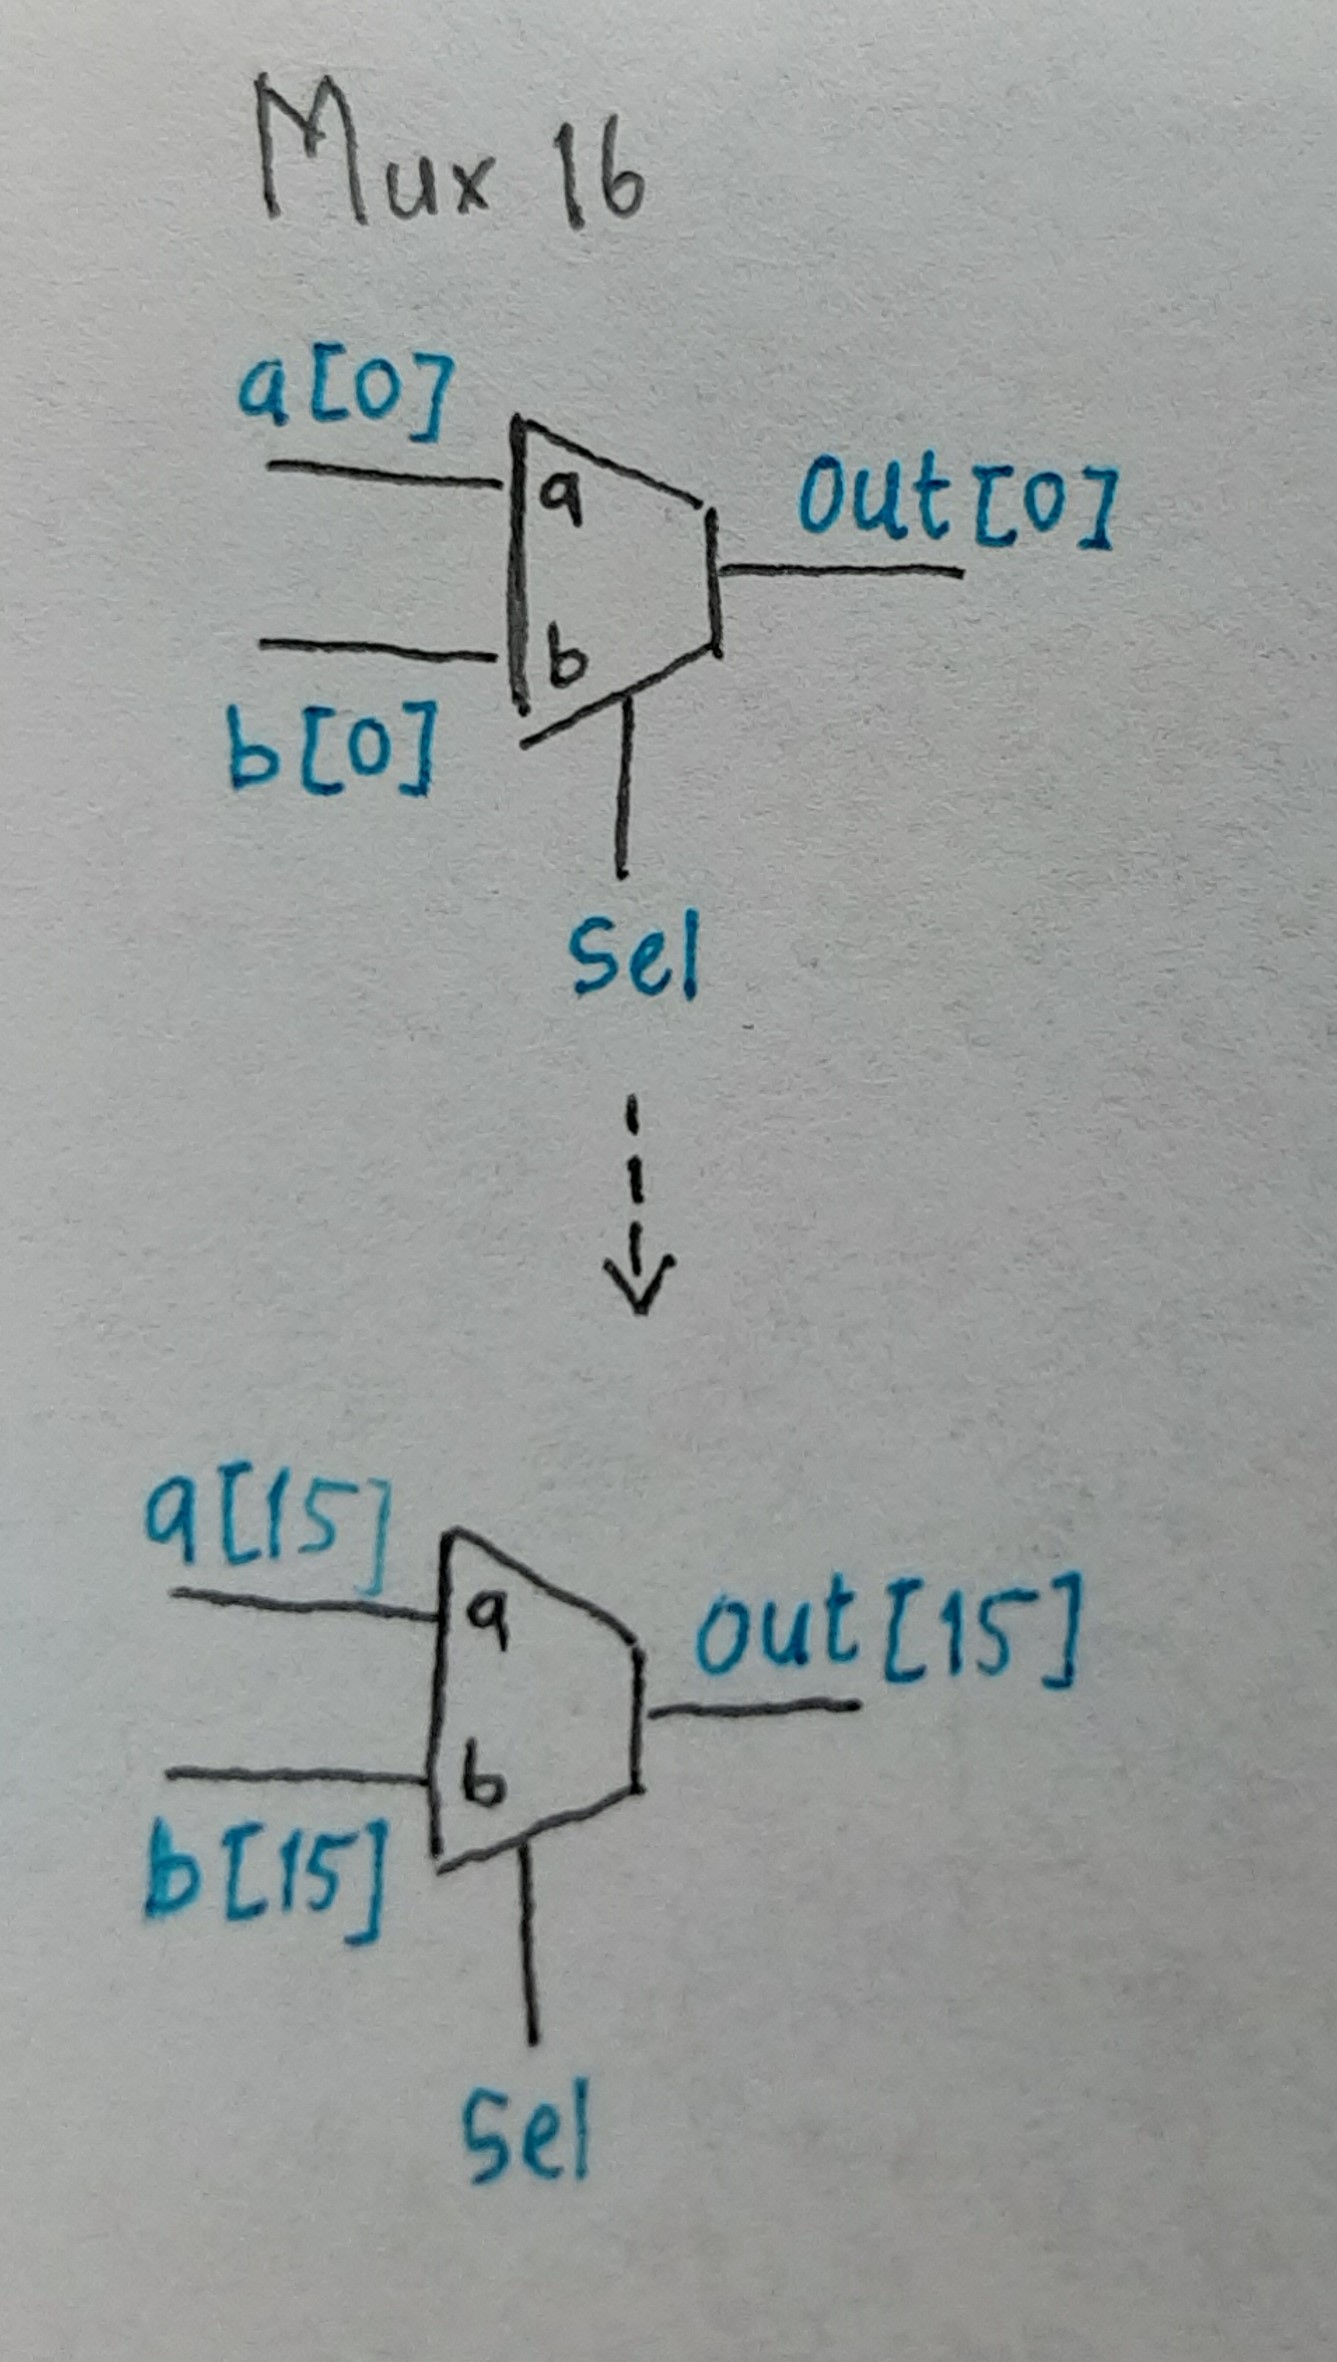 Mux 16
a[0]
a
out[0]
b
b[0]
Sel
a[15]
a
out[15]
b
b[15]
Sel